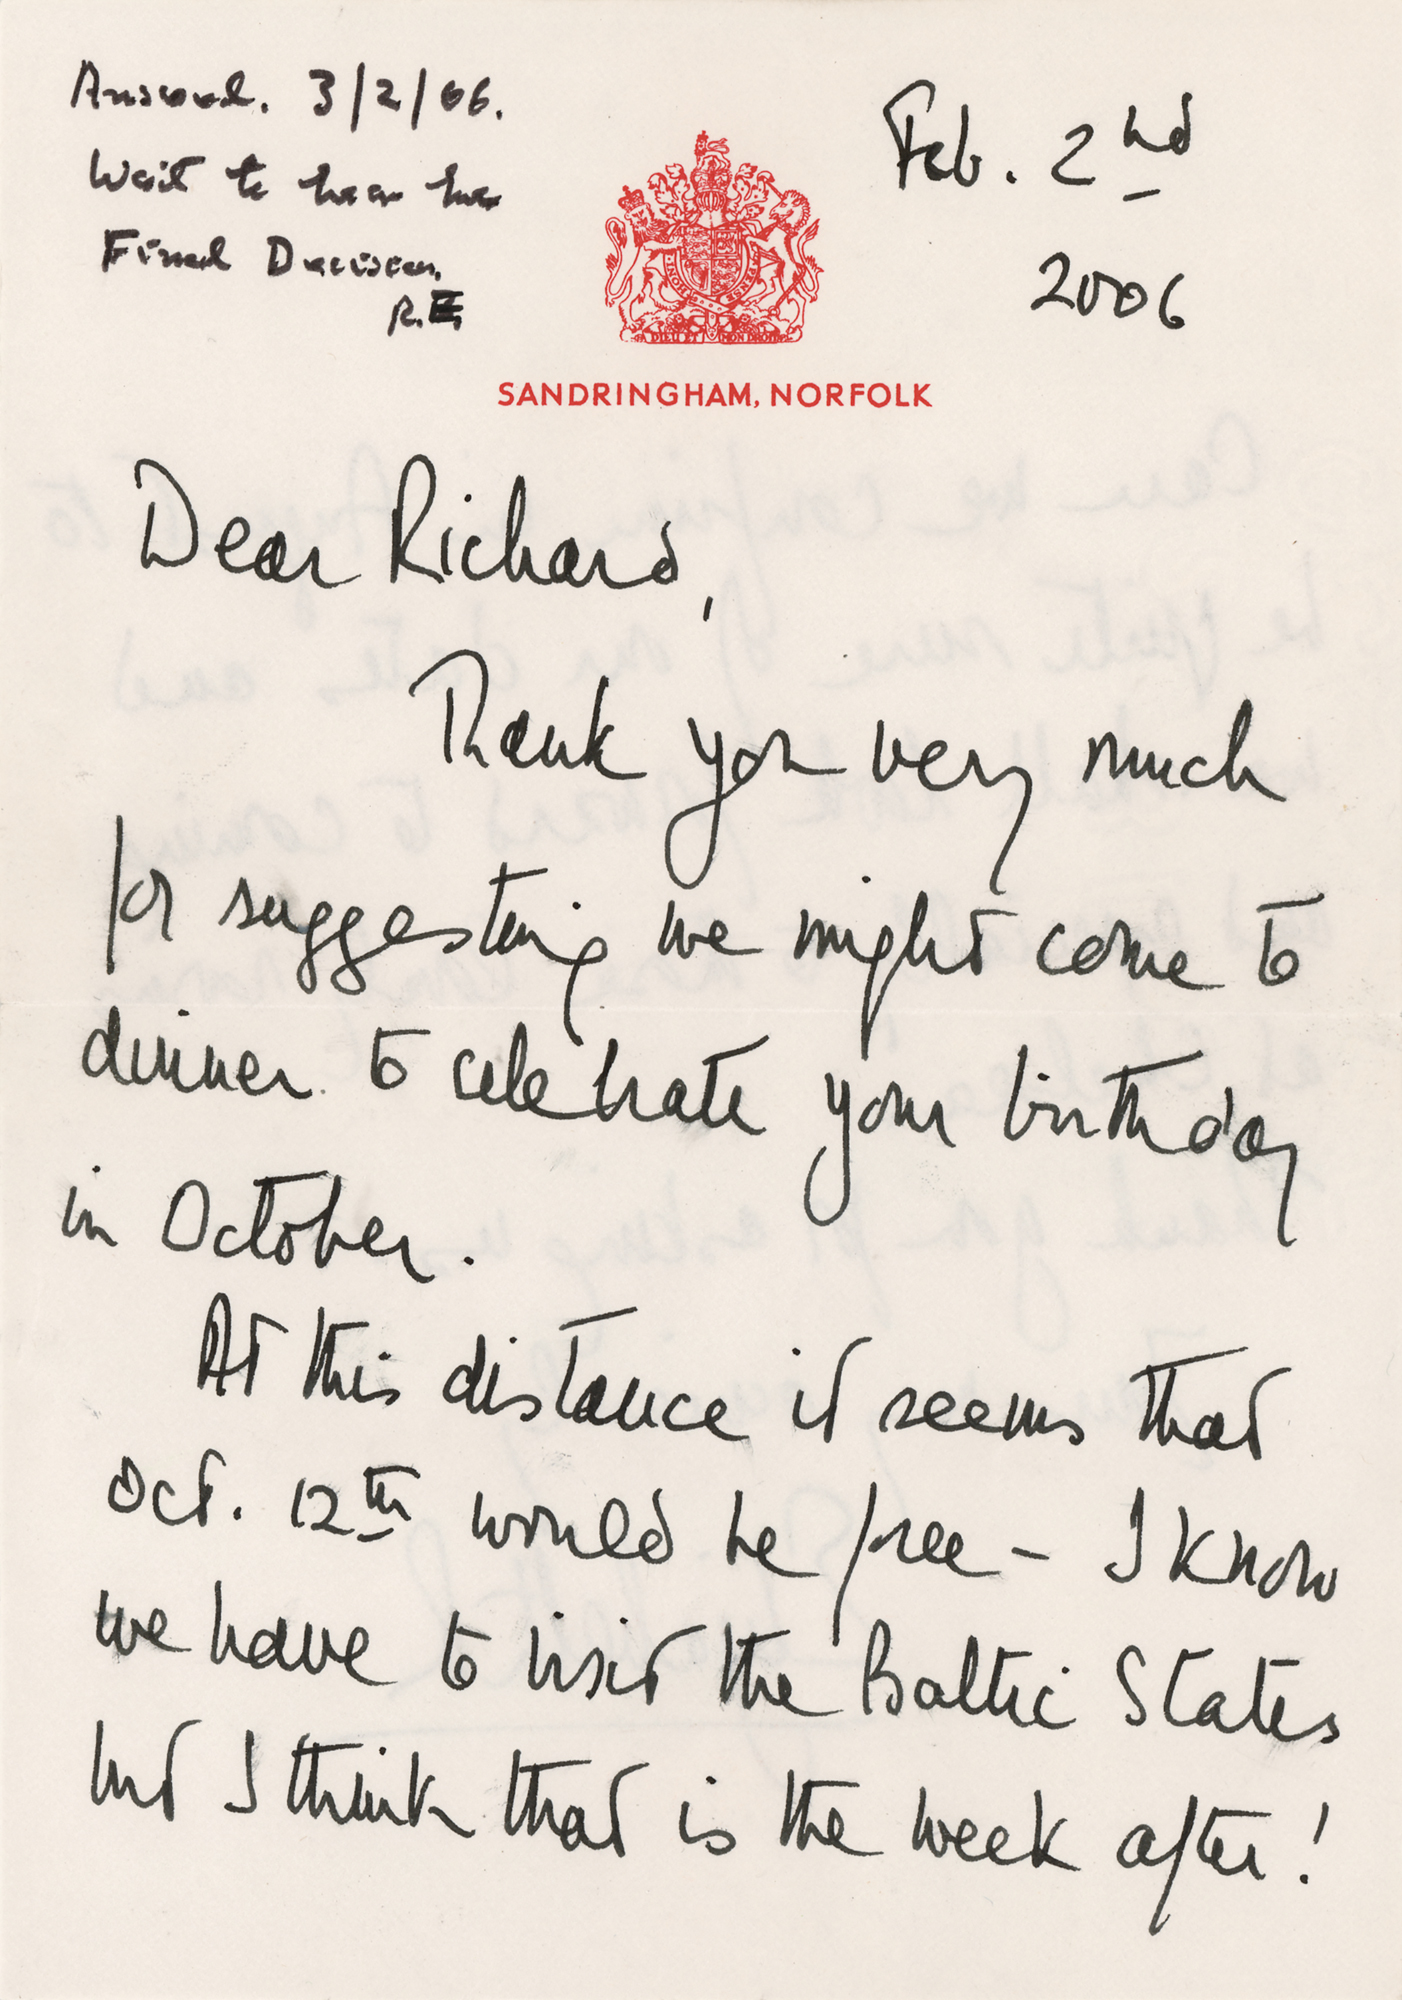 Answered. 3/2/06.
Wait to hear her
Final Decision.
R.E.
Feb. 2nd
2006
DIEU ET MON DROIT
SANDRINGHAM, NORFOLK
Dear Richard,
Thank you very much
for suggesting we might come to
dinner to celebrate your birthday
in October.
At this distance it seems that
Oct. 12th would be free – I know
we have to visit the Baltic States
but I think that is the week after!